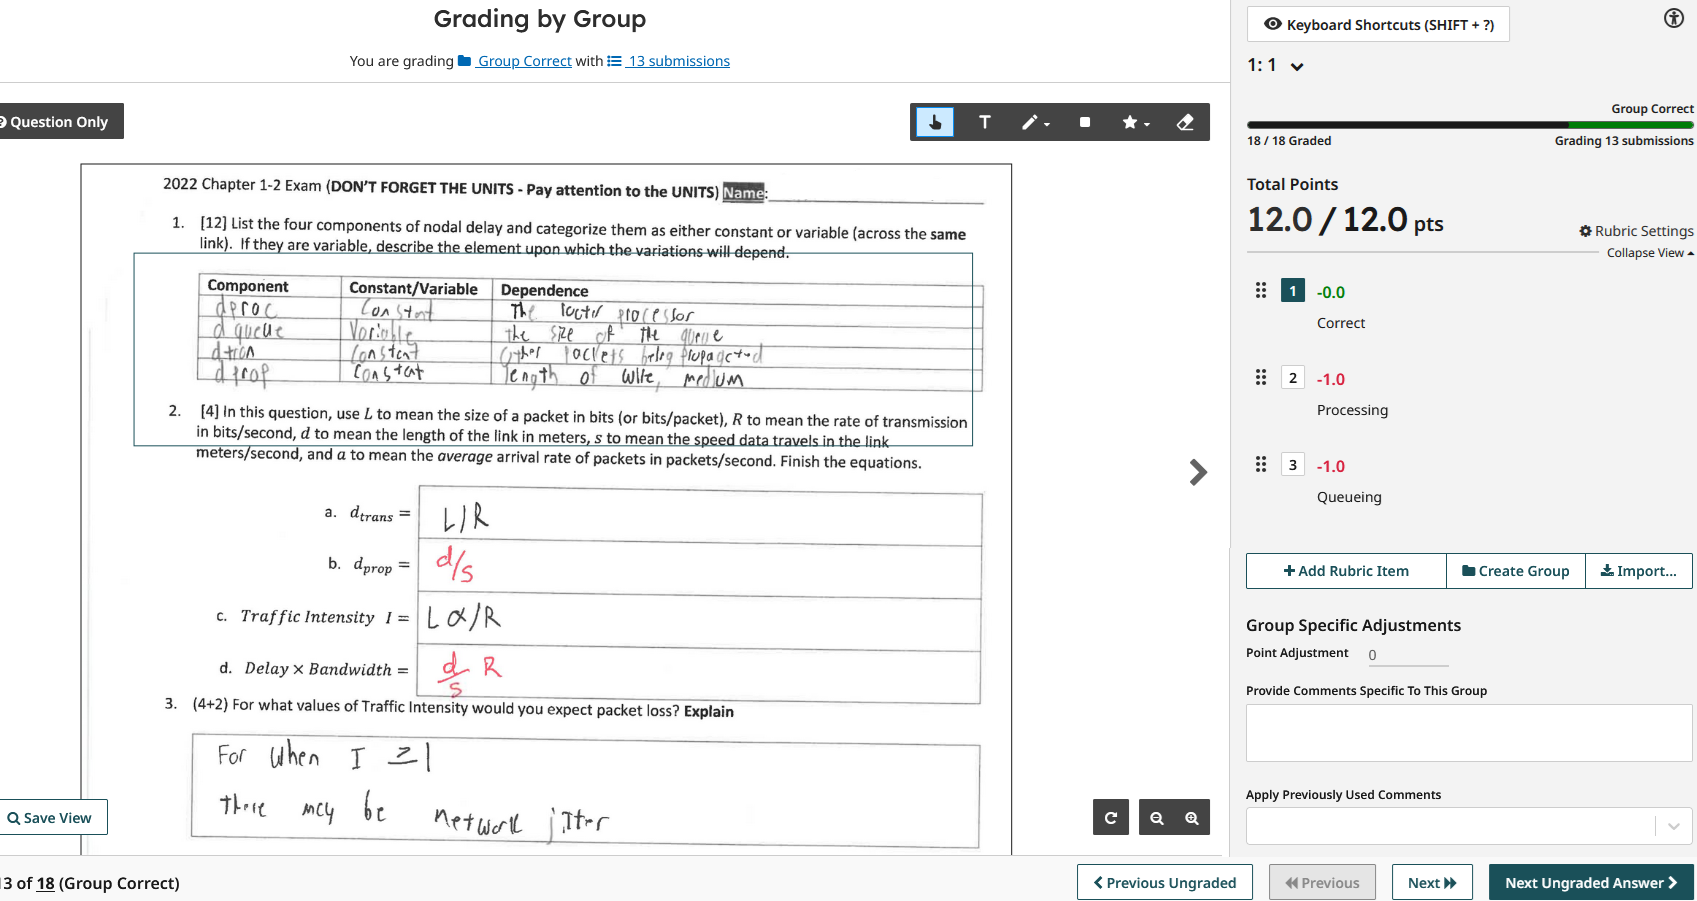 Grading by Group
You are grading Group Correct with 13 submissions
Question Only
T
2022 Chapter 1-2 Exam (DON'T FORGET THE UNITS - Pay attention to the UNITS) Name:
1. [12] List the four components of nodal delay and categorize them as either constant or variable (across the same
link). If they are variable, describe the element upon which the variations will depend.
Component Constant/Variable Dependence
dproc Constant The router processor
d queue Variable the size of the queue
dtran Constant Other packets being propagated
d prop Constant length of wire, medium
2. [4] In this question, use L to mean the size of a packet in bits (or bits/packet), R to mean the rate of transmission
in bits/second, d to mean the length of the link in meters, s to mean the speed data travels in the link
meters/second, and a to mean the average arrival rate of packets in packets/second. Finish the equations.
a. dtrans = L/R
b. dprop = d/s
c. Traffic Intensity I = L α/R
d. Delay × Bandwidth = d/s R
3. (4+2) For what values of Traffic Intensity would you expect packet loss? Explain
For when I ≥1
there may be network jitter
Save View
13 of 18 (Group Correct)
Previous Ungraded
Previous
Next
Next Ungraded Answer
Keyboard Shortcuts (SHIFT + ?)
1: 1
Group Correct
18 / 18 Graded Grading 13 submissions
Total Points
12.0 / 12.0 pts
Rubric Settings
Collapse View
1 -0.0
Correct
2 -1.0
Processing
3 -1.0
Queueing
+ Add Rubric Item
Create Group
Import...
Group Specific Adjustments
Point Adjustment 0
Provide Comments Specific To This Group
Apply Previously Used Comments